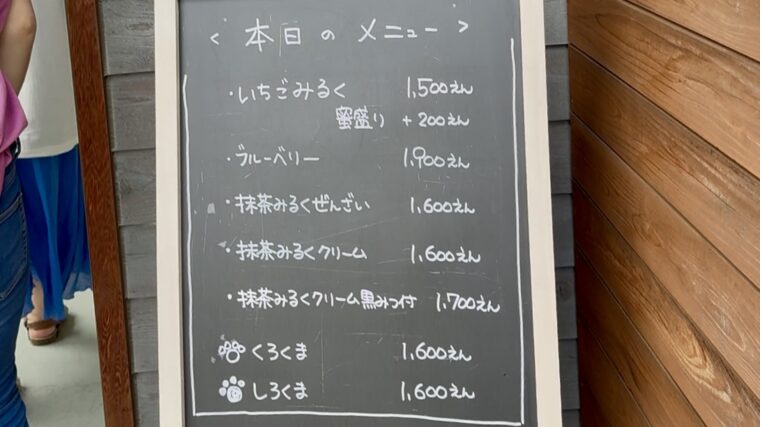 < 本日のメニュー >
・いちごみるく 1,500えん
蜜盛り +200えん
・ブルーベリー 1,900えん
・抹茶みるくぜんざい 1,600えん
・抹茶みるくクリーム 1,600えん
・抹茶みるくクリーム黒みつ付 1,700えん
くろくま 1,600えん
しろくま 1,600えん